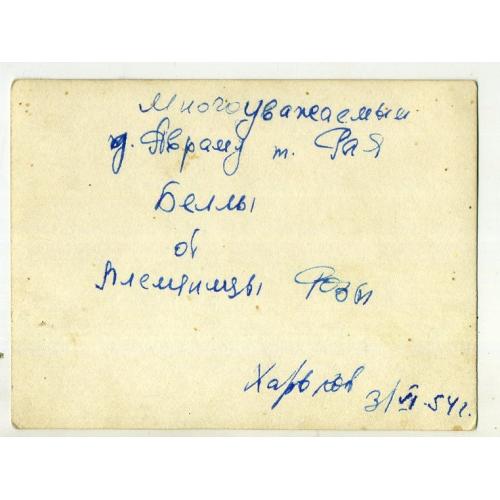 Многоуважаемым
д. Авраму т. Рая
Беллы
от
Племянницы Розы
Харьков
3/VI-54г.